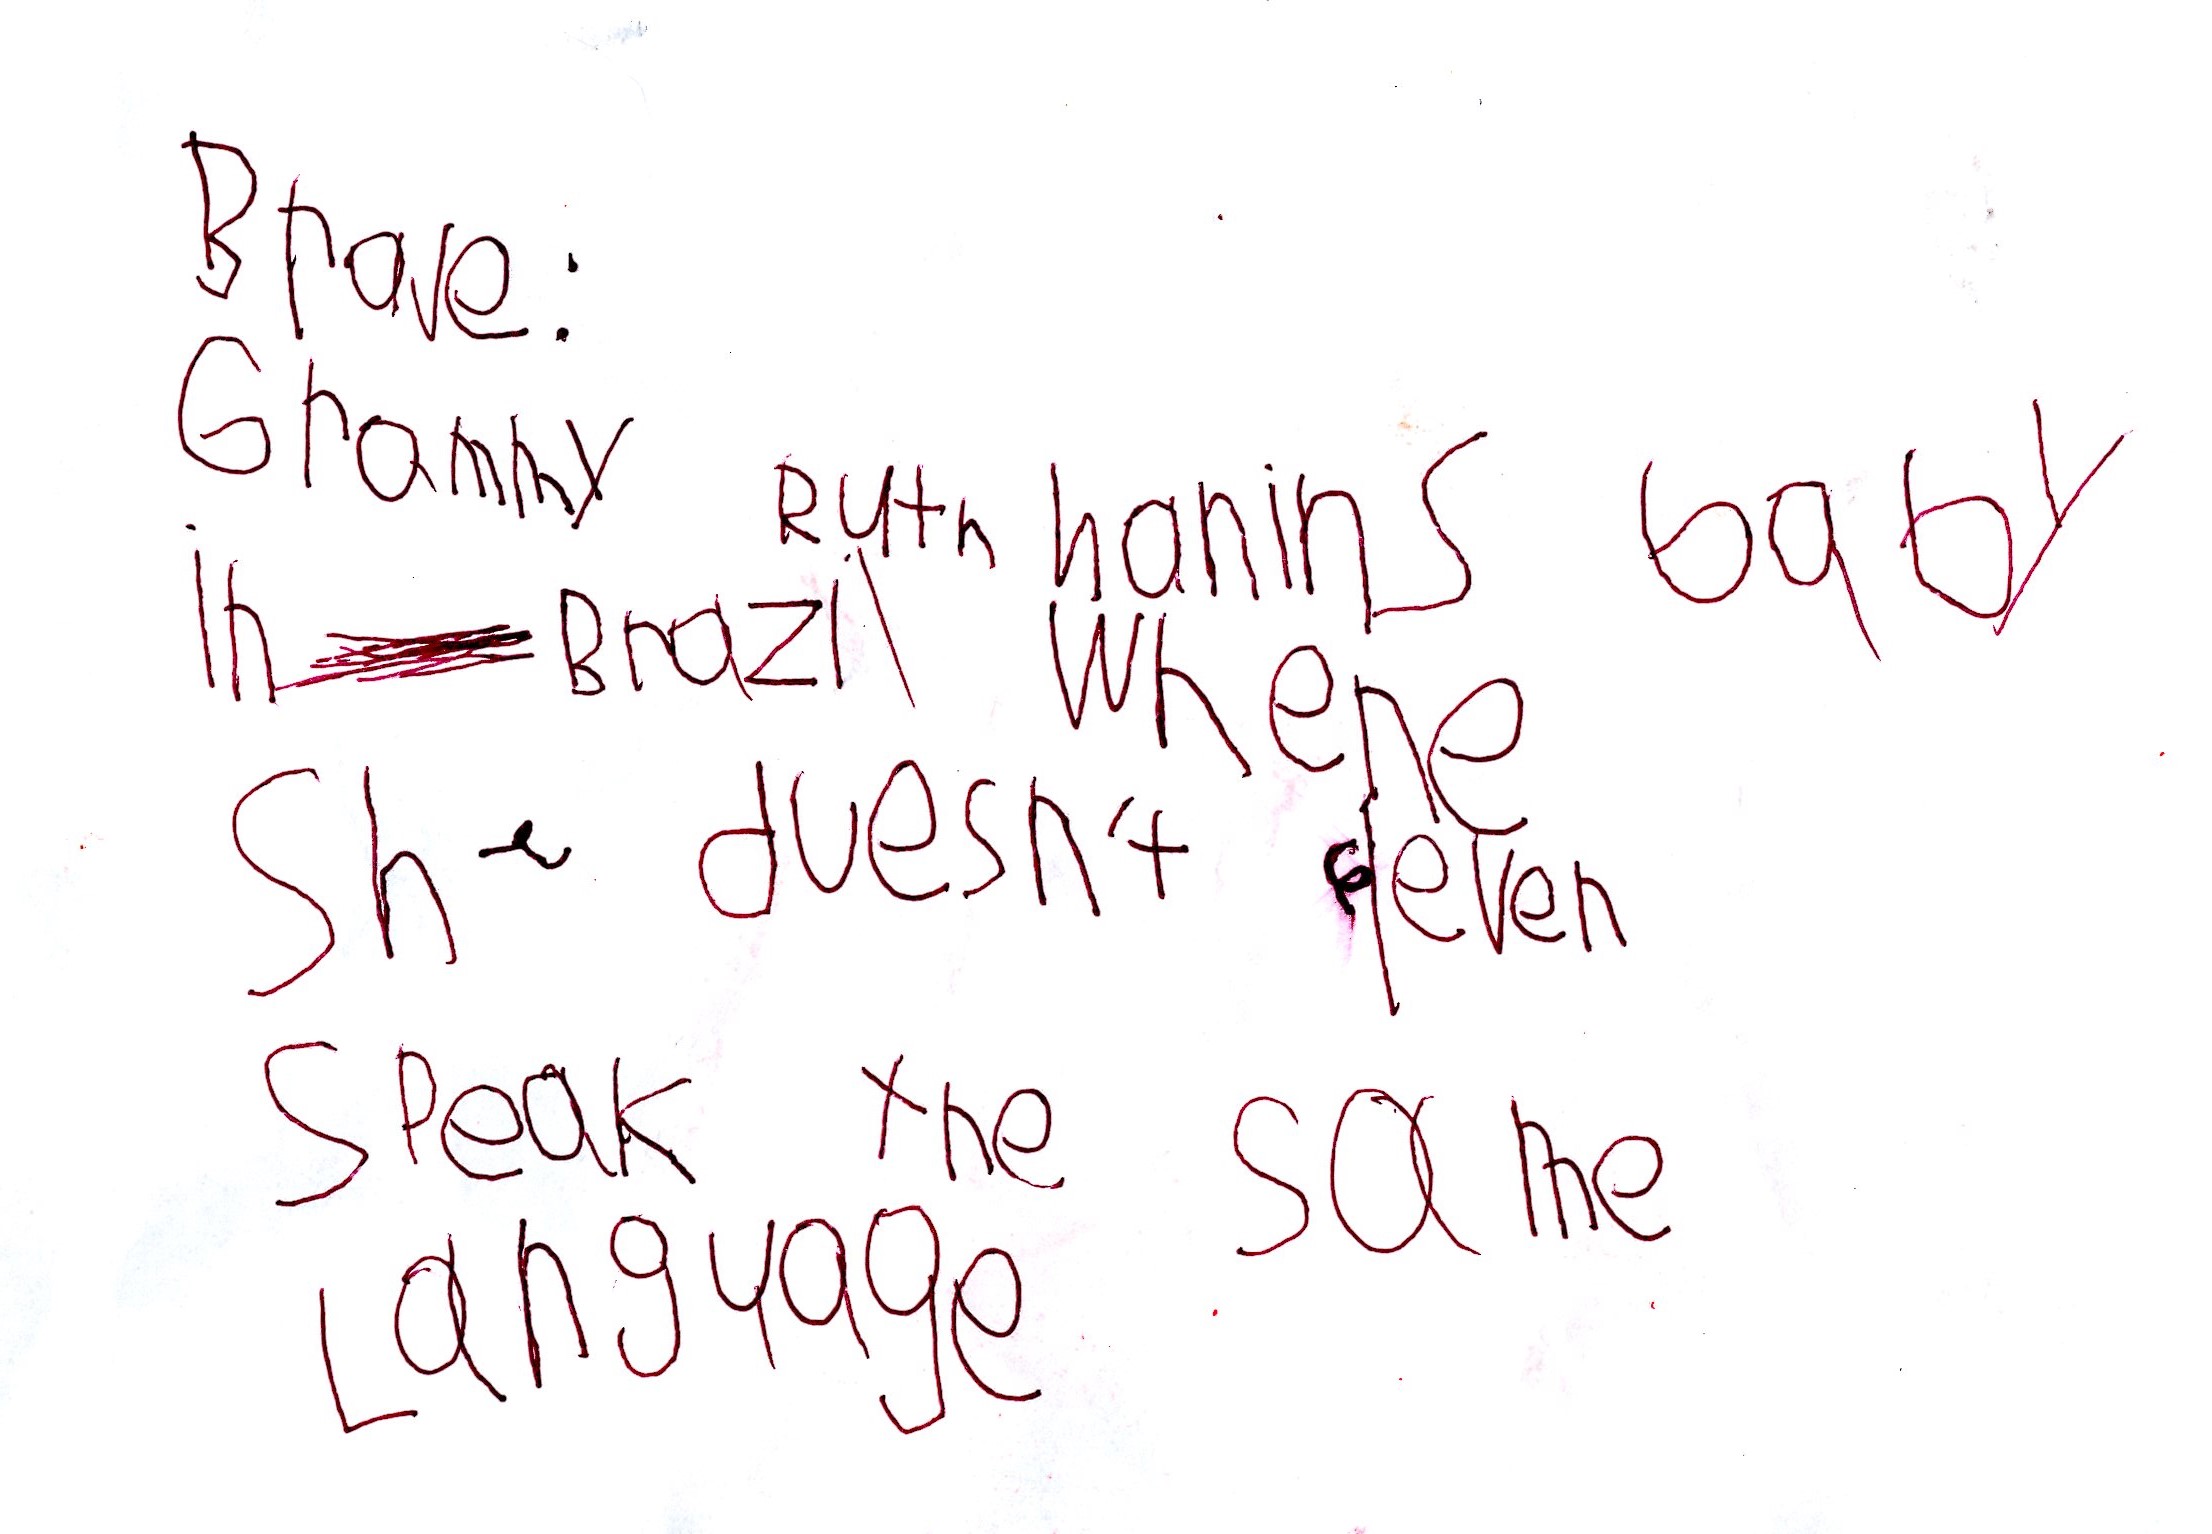 Brave:
Granny Ruth hanins baby
in Brazil where
She duesn't even
Speak the same
Language